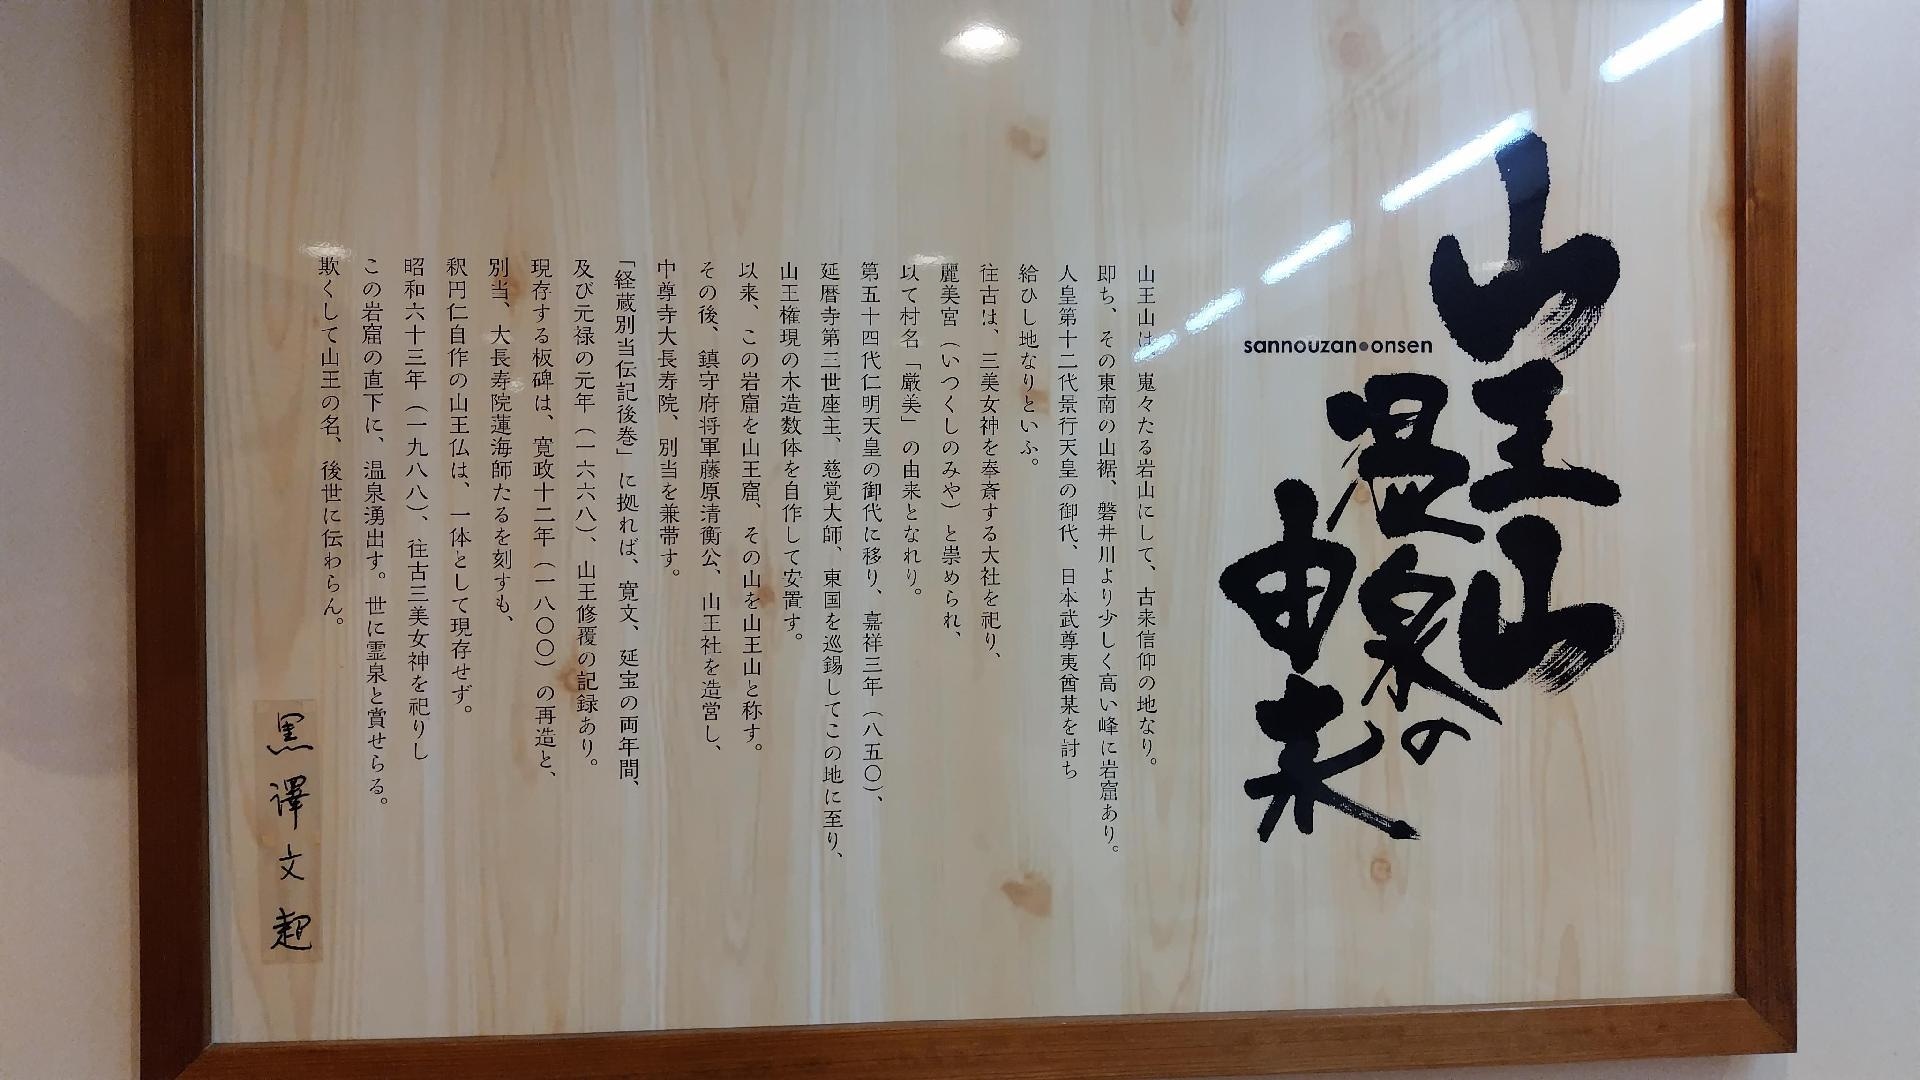 山王山
温泉の
由来
sannouzan●onsen
山王山は、嵬々たる岩山にして、古来信仰の地なり。
即ち、その東南の山裾、磐井川より少しく高い峰に岩窟あり。
人皇第十二代景行天皇の御代、日本武尊夷酋某を討ち
給ひし地なりといふ。
往古は、三美女神を奉斎する大社を祀り、
麗美宮（いつくしのみや）と崇められ、
以て村名「厳美」の由来となれり。
第五十四代仁明天皇の御代に移り、嘉祥三年（八五〇）、
延暦寺第三世座主、慈覚大師、東国を巡錫してこの地に至り、
山王権現の木造数体を自作して安置す。
以来、この岩窟を山王窟、その山を山王山と称す。
その後、鎮守府将軍藤原清衡公、山王社を造営し、
中尊寺大長寿院、別当を兼帯す。
「経蔵別当伝記後巻」に拠れば、寛文、延宝の両年間、
及び元禄の元年、（一六六八）、山王修覆の記録あり。
現存する板碑は、寛政十二年（一八〇〇）の再造と、
別当、大長寿院蓮海師たるを刻すも、
釈円仁自作の山王仏は、一体として現存せず。
昭和六十三年（一九八八）、往古三美女神を祀りし
この岩窟の直下に、温泉湧出す。世に霊泉と賞せらる。
欺くして山王の名、後世に伝わらん。
黒澤文起